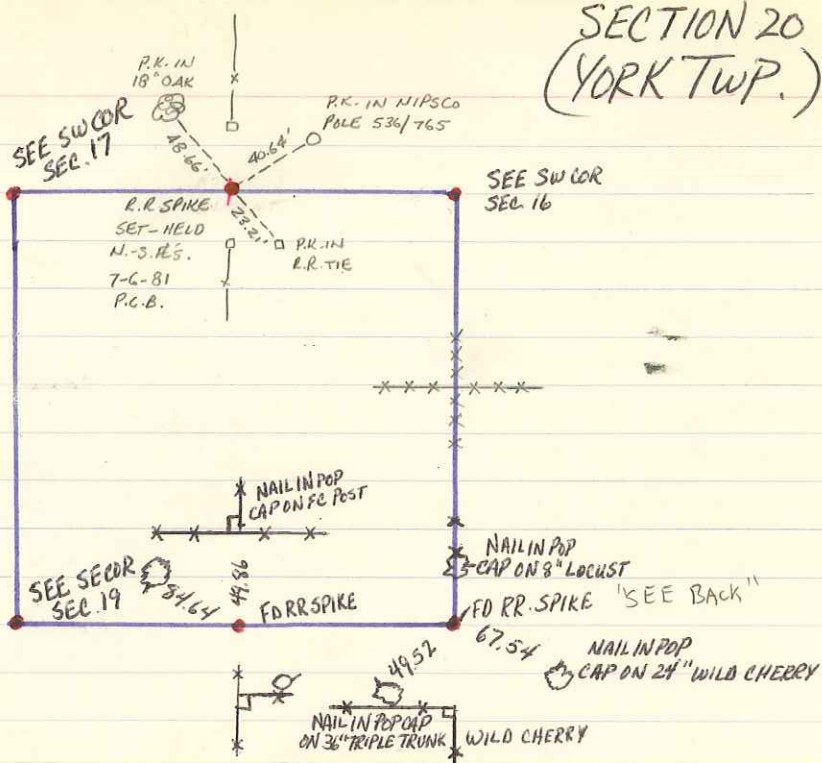 SECTION 20
(YORK TWP.)
P.K. IN
18" OAK
48.66'
40.64'
P.K. IN NIPSCO
POLE 536/765
SEE SW COR
SEC. 17
SEE SW COR
SEC. 16
R.R. SPIKE
SET-HELD
7-6-81
P.C.B.
23.21'
P.K. IN
R.R. TIE
NAIL IN POP
CAP ON FC POST
NAIL IN POP
CAP ON 8" LOCUST
SEE SE COR
SEC. 19
84.64
FD RR SPIKE
FD RR. SPIKE
"SEE BACK"
67.54
NAIL IN POP
CAP ON 24" WILD CHERRY
49.52
NAIL IN POP CAP
ON 36" TRIPLE TRUNK WILD CHERRY